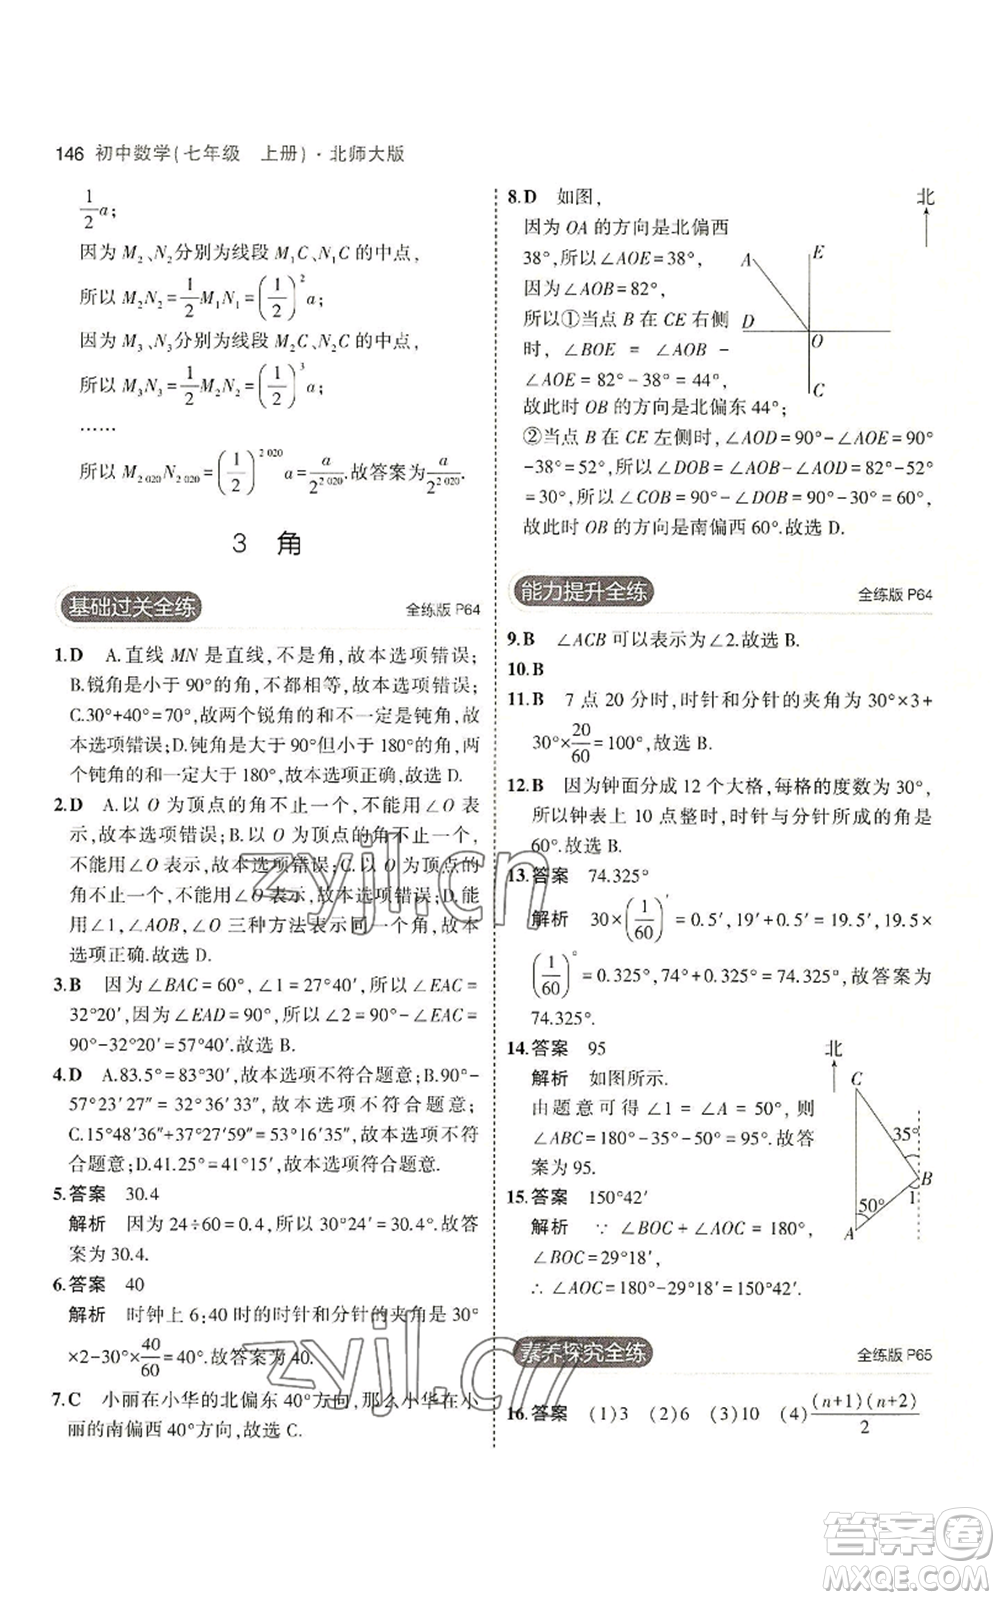 146 初中数学(七年级 上册)·北师大版
1/2 a;
因为 M₂、N₂分别为线段 M₁C、N₁C 的中点,
所以 M₂N₂=1/2 M₁N₁=(1/2)²a;
因为 M₃、N₃分别为线段 M₂C、N₂C 的中点,
所以 M₃N₃=1/2 M₂N₂=(1/2)³a;
……
所以 M₂₀₂₀N₂₀₂₀=(1/2)^2 020 a=a/2^2 020.故答案为a/2^2 020.
3 角
基础过关全练 全练版 P64
1.D A.直线 MN 是直线,不是角,故本选项错误;
B.锐角是小于 90°的角,不都相等,故本选项错误;
C.30°+40°=70°,故两个锐角的和不一定是钝角,故
本选项错误;D.钝角是大于 90°但小于 180°的角,故
两个钝角的和一定大于 180°,故本选项正确,故选 D.
2.D A.以 O 为顶点的角不止一个,不能用∠O 表
示,故本选项错误;B.以 O 为顶点的角不止一个,
不能用∠O 表示,故本选项错误;C.以 O 为顶点的
角不止一个,不能用∠O 表示,故本选项错误;D.能
用∠1,∠AOB,∠O 三种方法表示同一个角,故本
选项正确.故选 D.
3.B 因为∠BAC=60°,∠1=27°40′,所以∠EAC=
32°20′,因为∠EAD=90°,所以∠2=90°-∠EAC=
90°-32°20′=57°40′.故选 B.
4.D A.83.5°=83°30′,故本选项不符合题意;B.90°-
57°23′27″=32°36′33″,故本选项不符合题意;
C.15°48′36″+37°27′59″=53°16′35″,故本选项不符
合题意;D.41.25°=41°15′,故本选项符合题意.
5.答案 30.4
解析 因为 24÷60=0.4,所以 30°24′=30.4°.故答
案为 30.4.
6.答案 40
解析 时钟上 6:40 时的时针和分针的夹角是 30°
×2-30°×40/60=40°.故答案为 40.
7.C 小丽在小华的北偏东 40°方向,那么小华在小
丽的南偏西 40°方向,故选 C.
8.D 如图,
因为 OA 的方向是北偏西
38°,所以∠AOE=38°,
因为∠AOB=82°,
所以①当点 B 在 CE 右侧
时,∠BOE=∠AOB-
∠AOE=82°-38°=44°,
故此时 OB 的方向是北偏东 44°;
②当点 B 在 CE 左侧时,∠AOD=90°-∠AOE=90°
-38°=52°,所以∠DOB=∠AOB-∠AOD=82°-52°
=30°,所以∠COB=90°-∠DOB=90°-30°=60°,
故此时 OB 的方向是南偏西 60°.故选 D.
北
A
E
D
O
C
能力提升全练 全练版 P64
9.B ∠ACB 可以表示为∠2.故选 B.
10.B
11.B 7 点 20 分时,时针和分针的夹角为 30°×3+
30°×20/60=100°,故选 B.
12.B 因为钟面分成 12 个大格,每格的度数为 30°,
所以钟表上 10 点整时,时针与分针所成的角是
60°.故选 B.
13.答案 74.325°
解析 30×(1/60)′=0.5′,19′+0.5′=19.5′,19.5×
(1/60)°=0.325°,74°+0.325°=74.325°,故答案为
74.325°.
14.答案 95
解析 如图所示.
由题意可得∠1=∠A=50°,则
∠ABC=180°-35°-50°=95°.故答
案为 95.
北
C
35°
B
1
50°
A
15.答案 150°42′
解析 ∵∠BOC+∠AOC=180°,
∠BOC=29°18′,
∴∠AOC=180°-29°18′=150°42′
素养探究全练 全练版 P65
16.答案 (1)3 (2)6 (3)10 (4)(n+1)(n+2)/2
zyjl.cn
zyjl.cn
答案卷
MXQE.COM